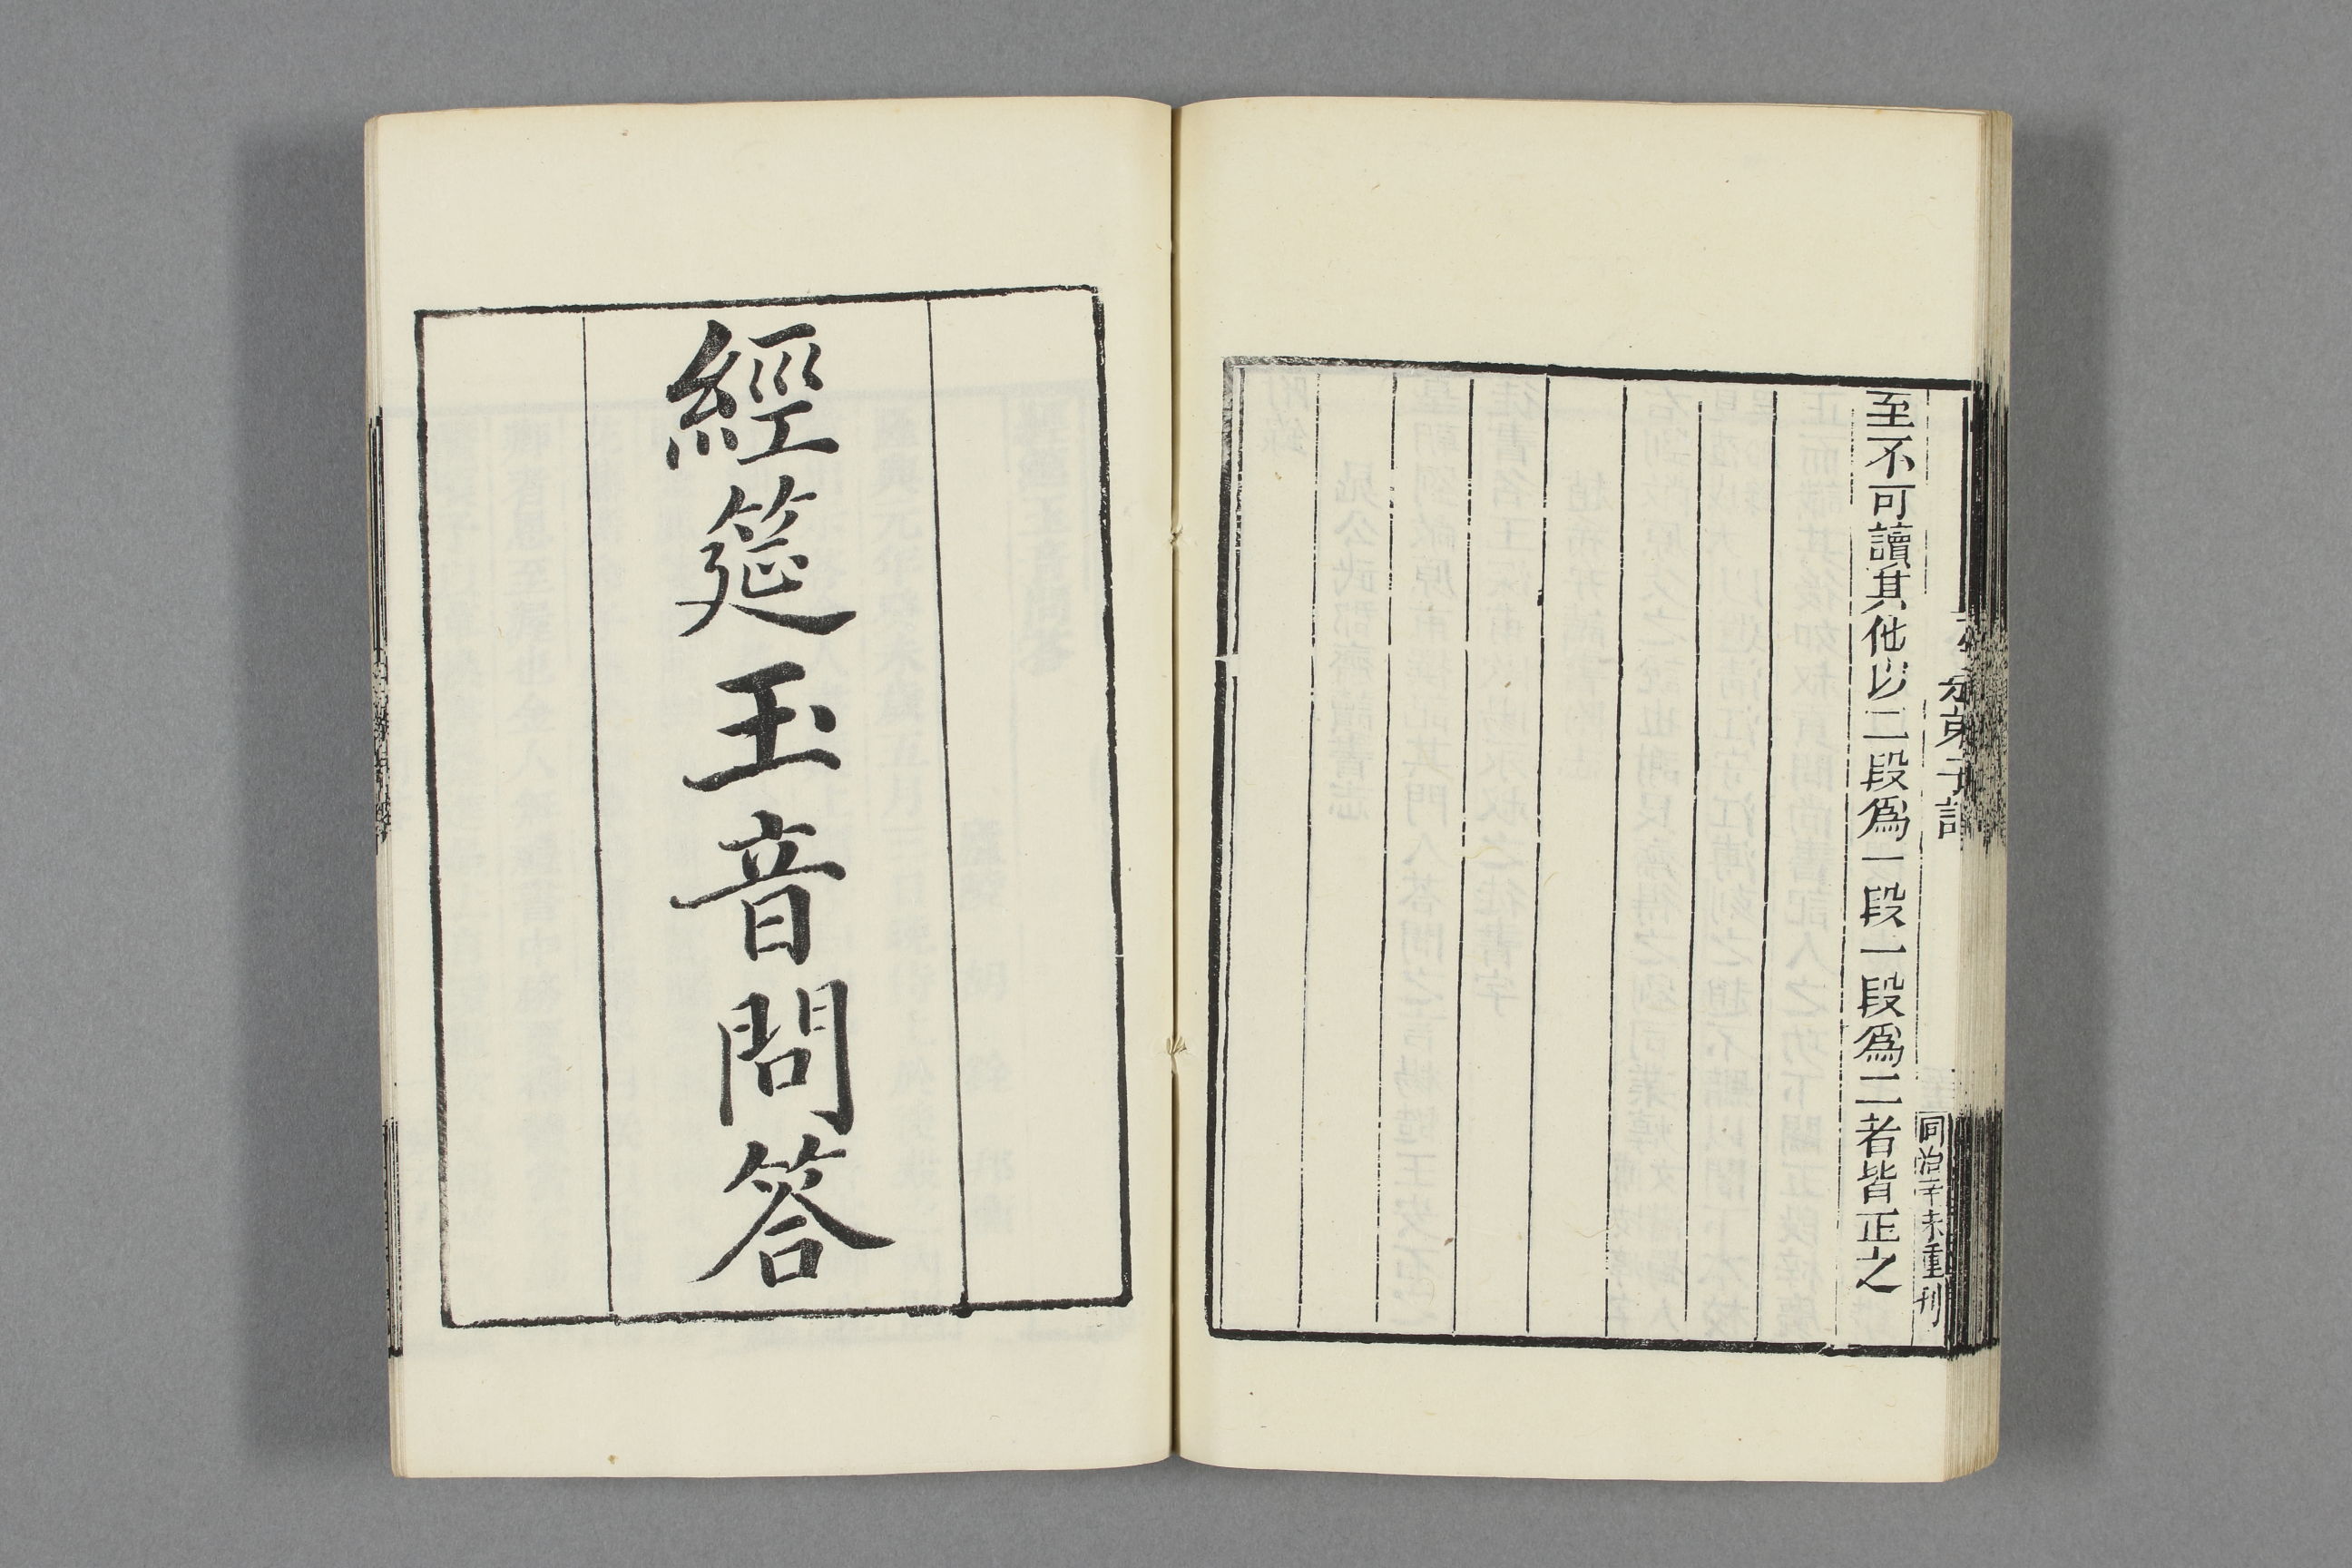 至不可讀其他以二段爲一段一段爲二者皆正之
公是弟子記
同治辛未重刊
經筵玉音問答